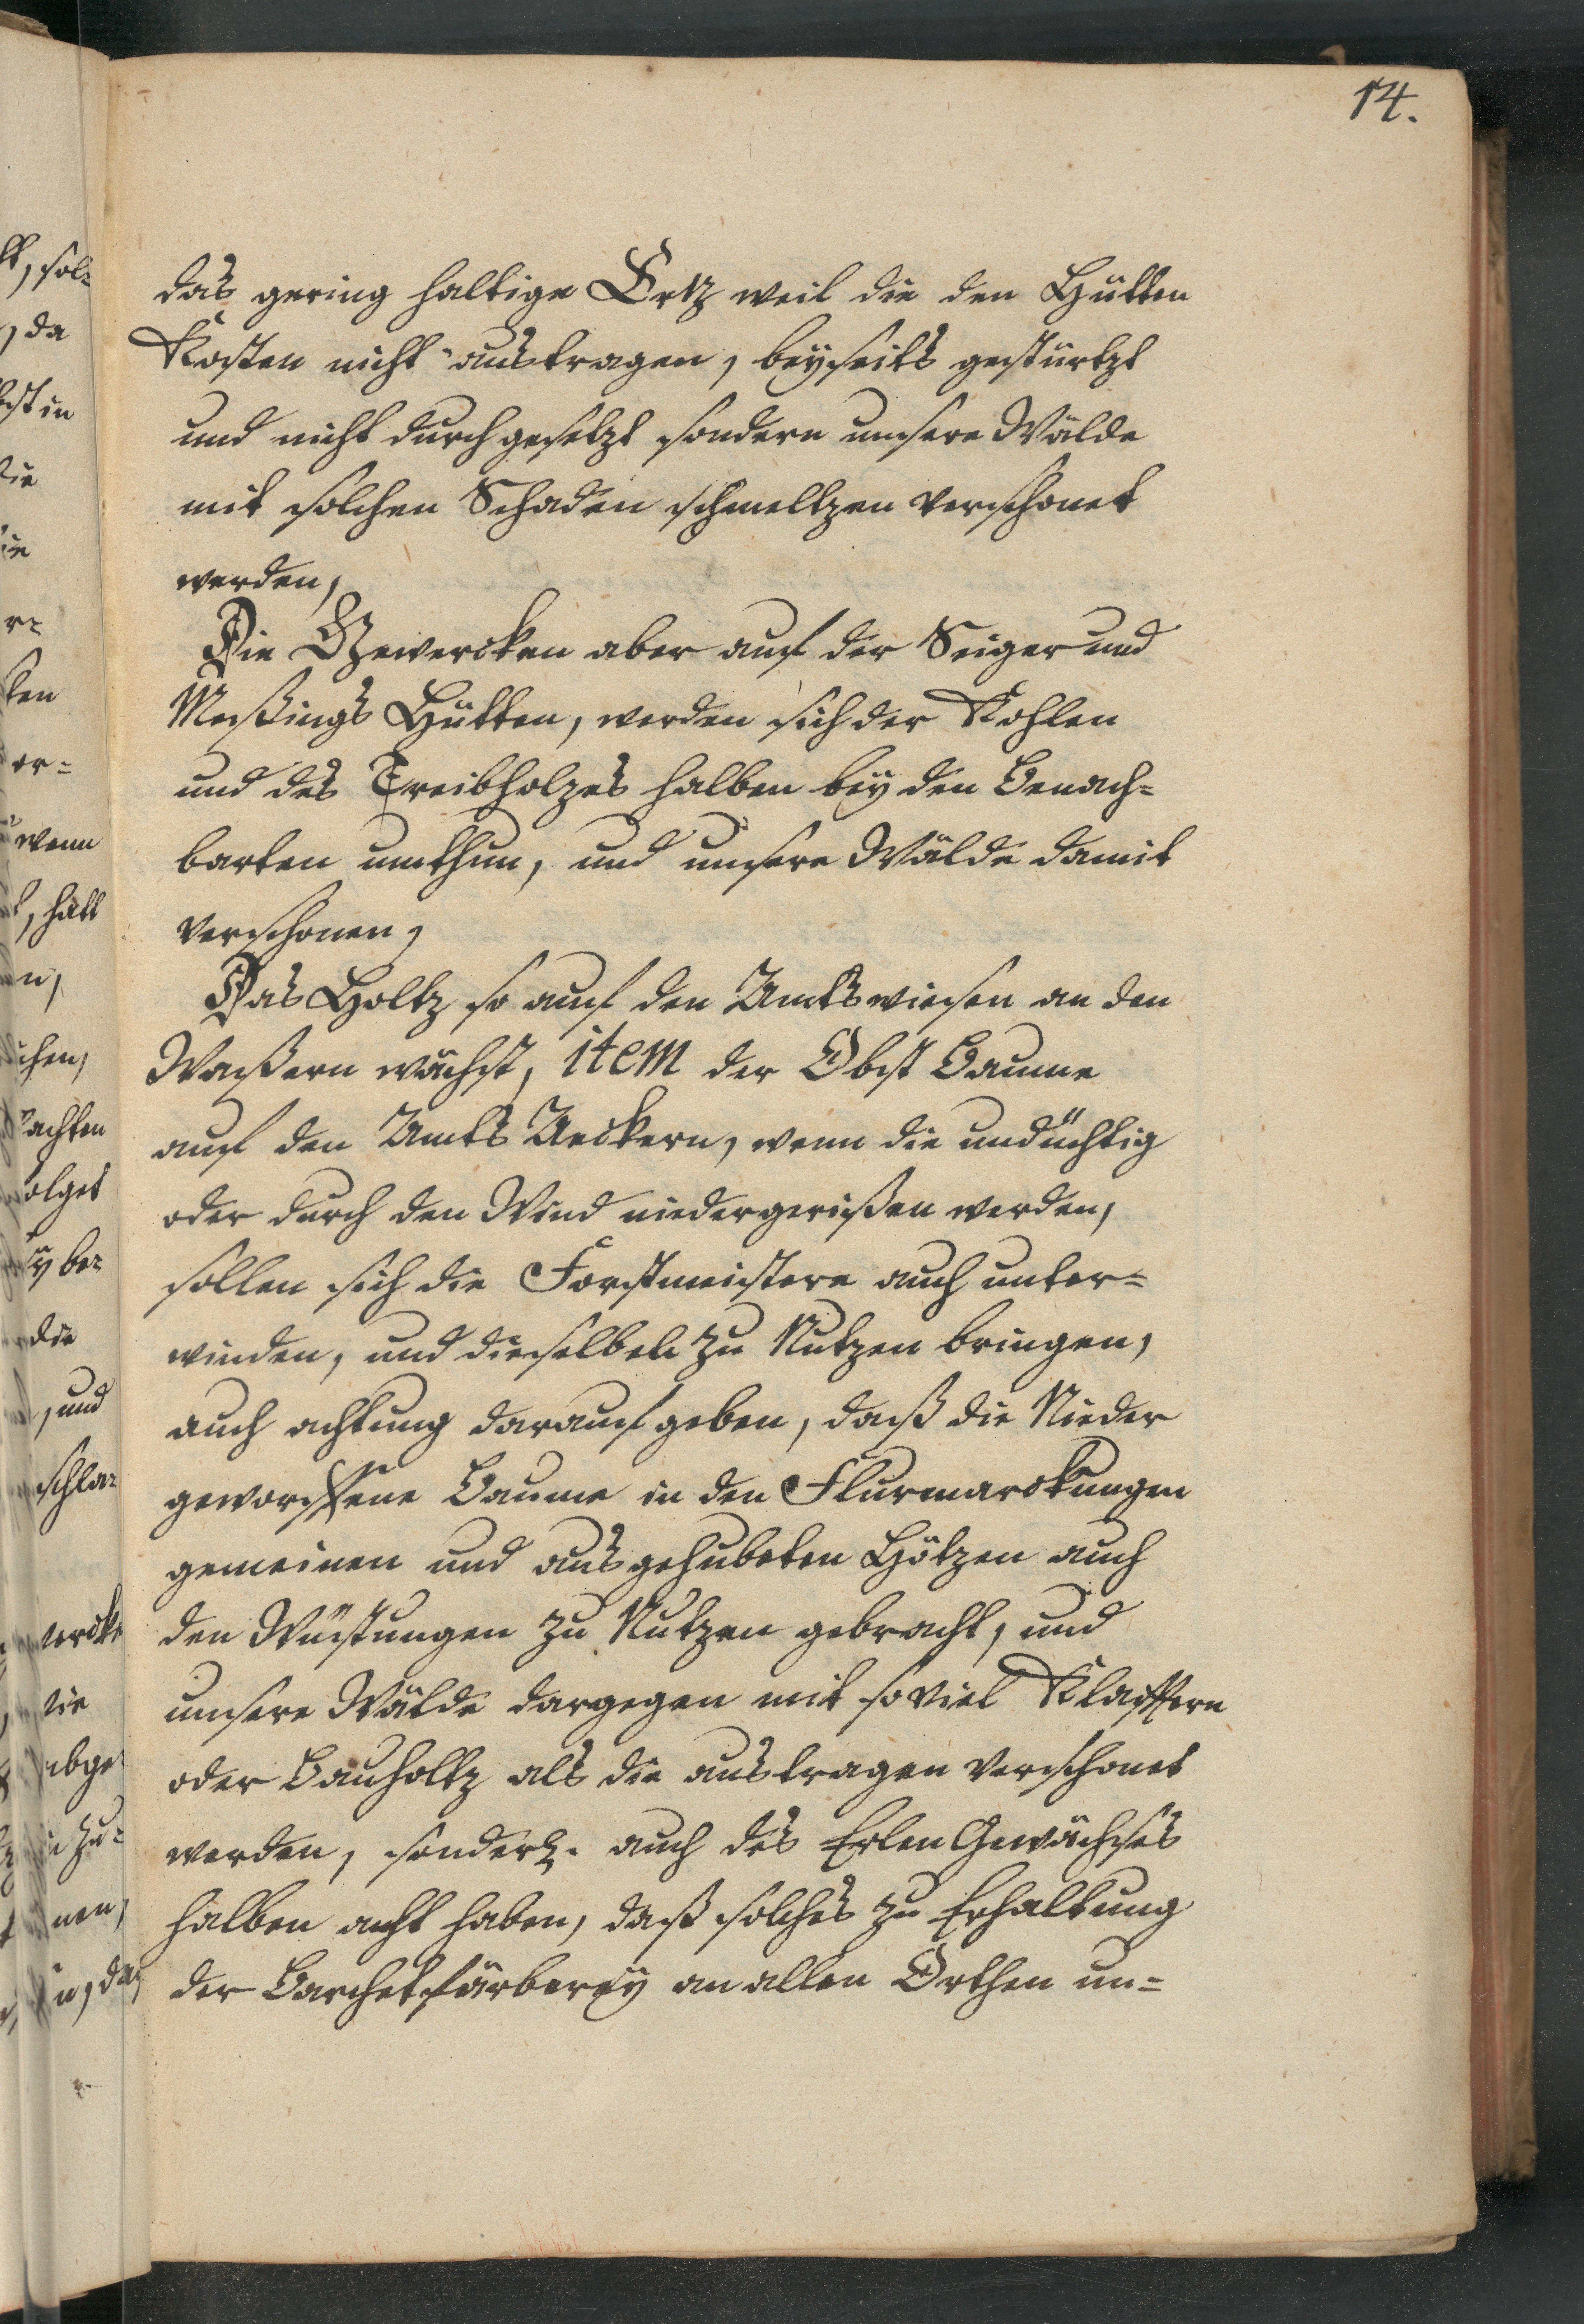 14.
das gering haltige Ertz weil die den Hütten
Kosten nicht austragen, beyseits gestürtzt
und nicht durchgesetzt sondern unsere Wälde
mit solchen Schaden schmeltzen verschonet
werden,
Die Gewercken aber auf der Seiger und
Meßings Hütten, werden sich der Kohlen
und des Treibholzes halben bey den Benach=
barten umthun, und unsere Wälde damit
verschonen,
Das Holtz so auf den Amtswiesen an den
Waßern wächst, item der Obst Baume
auf den Amts Aeckern, wenn die undüchtig
oder durch den Wind niedergerißen werden,
sollen sich die Forstmeistere auch unter=
winden, und dieselben zu Nutzen bringen,
auch achtung darauf geben, daß die Nieder
geworffene Baume in den Flurmarckungen
gemeinen und ausgehubeten Hötzen auch
den Wüstungen zu Nutzen gebracht, und
unsere Wälde dargegen mit so viel Klafftern
oder Bauholtz als die austragen verschonet
werden, sonderl. auch des Erlen Gewächses
halben acht haben, daß solches zu Erhaltung
der Barchetfärberey an allen Orthen un=